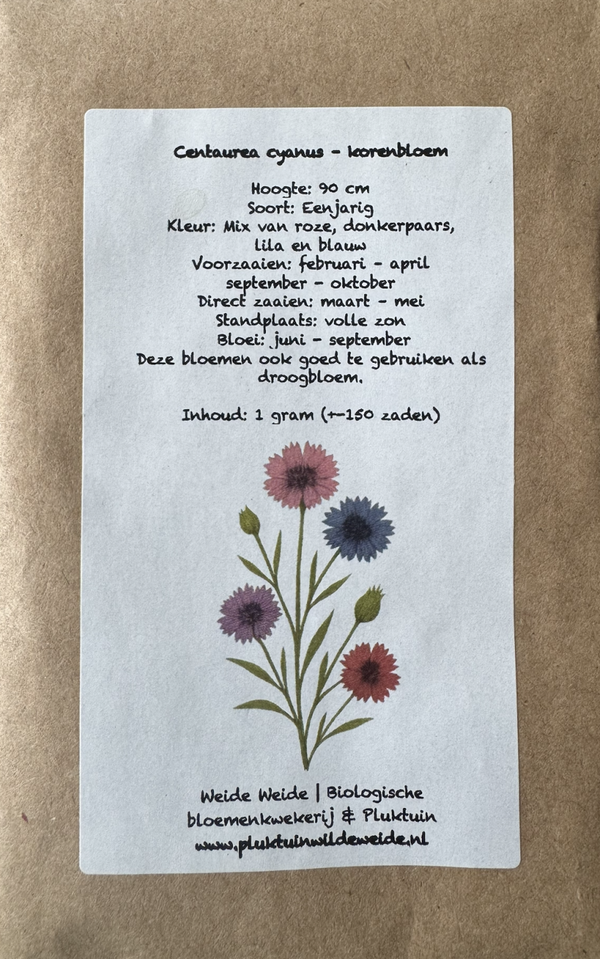 Centaurea cyanus - korenbloem
Hoogte: 90 cm
Soort: Eenjarig
Kleur: Mix van roze, donkerpaars,
lila en blauw
Voorzaaien: februari - april
september - oktober
Direct zaaien: maart - mei
Standplaats: volle zon
Bloei: juni - september
Deze bloemen ook goed te gebruiken als
droogbloem.
Inhoud: 1 gram (+-150 zaden)
Weide Weide | Biologische
bloemenkwekerij & Pluktuin
www.pluktuinwildeweide.nl